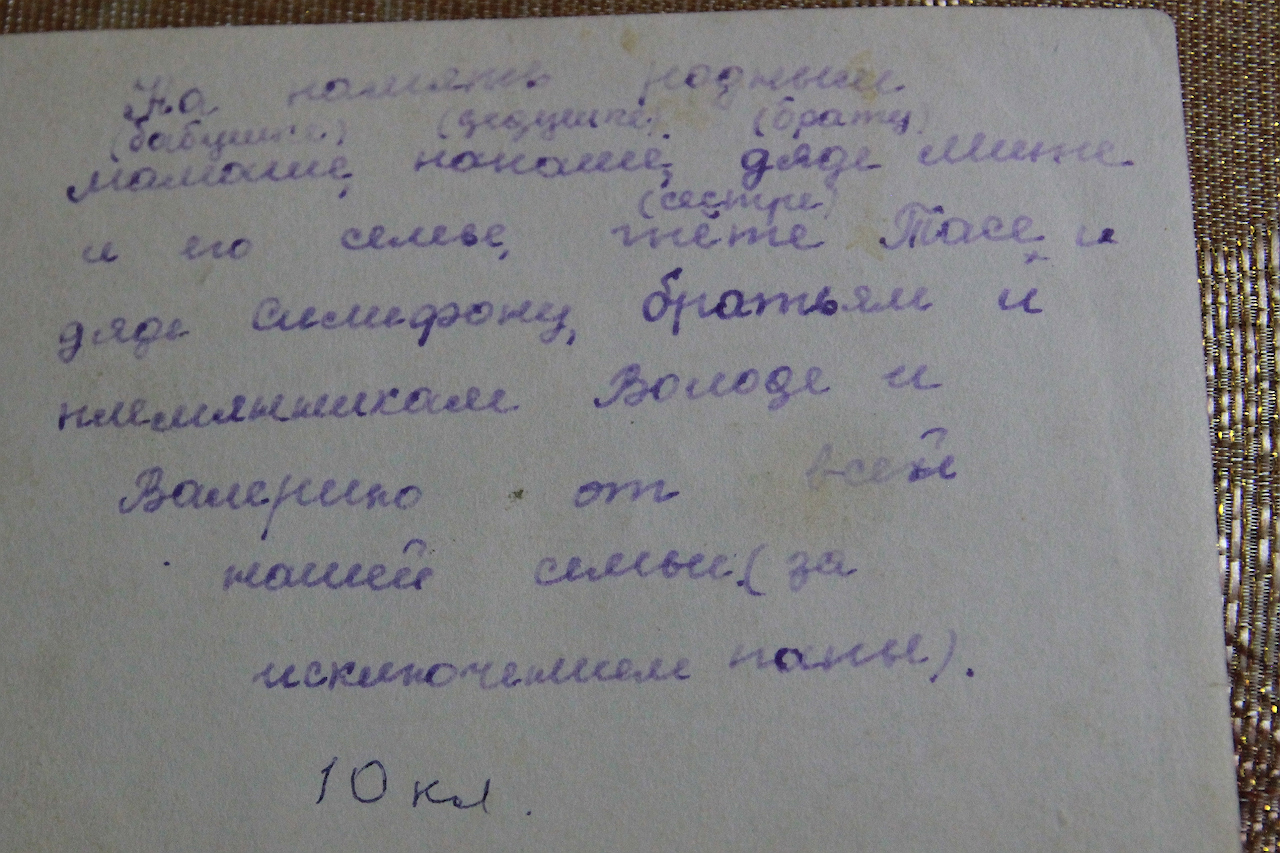 На память родным
(бабушке) (дедушке) (брату)
мамаше, папаше, дяде Мише
(сестре)
и его семье, тёте Тасе и
дяде Симифону, братьям и
племянникам Володе и
Валерию от всей
нашей семьи (за
исключением папы).
10 кл.